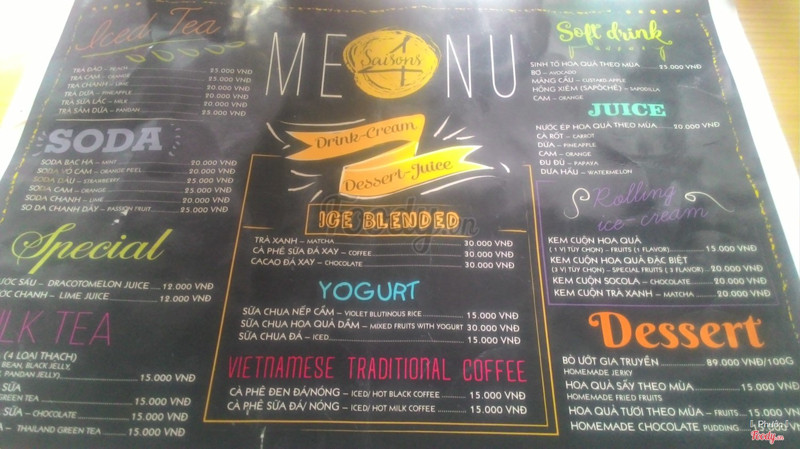 MENU
4 Saisons
Drink-Cream
Dessert-Juice
Iced Tea
TRÀ ĐÀO 25.000 VNĐ
TRÀ CAM – ORANGE 25.000 VNĐ
TRÀ CHANH – LIME 20.000 VNĐ
TRÀ DỨA – PINEAPPLE 20.000 VNĐ
TRÀ SỮA LẮC – MILK 20.000 VNĐ
TRÀ SÂM DỨA – PANDAN 25.000 VNĐ
SODA
SODA BẠC HÀ – MINT 20.000 VNĐ
SODA VỎ CAM – ORANGE PEEL 20.000 VNĐ
SODA DÂU – STRAWBERRY 25.000 VNĐ
SODA CAM – ORANGE 25.000 VNĐ
SODA CHANH – LIME 20.000 VNĐ
SO DA CHANH DÂY – PASSION FRUIT 25.000 VNĐ
Special
ƯỚC SẤU – DRACOTOMELON JUICE 12.000 VNĐ
ỚC CHANH – LIME JUICE 12.000 VNĐ
LK TEA
(4 LOẠI THẠCH)
BEAN, BLACK JELLY,
PANDAN JELLY) 15.000 VNĐ
SỮA
GREEN TEA 15.000 VNĐ
SỮA – CHOCOLATE 15.000 VNĐ
A – THAILAND GREEN TEA 15.000 VNĐ
ICE BLENDED
TRÀ XANH – MATCHA 30.000 VNĐ
CÀ PHÊ SỮA ĐÁ XAY – COFFEE 30.000 VNĐ
CACAO ĐÁ XAY – CHOCOLATE 30.000 VNĐ
YOGURT
SỮA CHUA NẾP CẨM – VIOLET BLUTINOUS RICE 15.000 VNĐ
SỮA CHUA HOA QUẢ DẦM – MIXED FRUITS WITH YOGURT 30.000 VNĐ
SỮA CHUA ĐÁ – ICED 15.000 VNĐ
VIETNAMESE TRADITIONAL COFFEE
CÀ PHÊ ĐEN ĐÁ/NÓNG – ICED/ HOT BLACK COFFEE 15.000 VNĐ
CÀ PHÊ SỮA ĐÁ/ NÓNG – ICED/ HOT MILK COFFEE 15.000 VNĐ
Soft drink
SINH TỐ HOA QUẢ THEO MÙA 35.000 VNĐ
BƠ – AVOCADO
MÃNG CẦU – CUSTARD-APPLE
HỒNG XIÊM (SAPÔCHÊ) – SAPODILLA
CAM – ORANGE
JUICE
NƯỚC ÉP HOA QUẢ THEO MÙA 20.000 VNĐ
CÀ RỐT – CARROT
DỨA – PINEAPPLE
CAM – ORANGE
ĐU ĐỦ – PAPAYA
DƯA HẤU – WATERMELON
Rolling
ice-cream
KEM CUỘN HOA QUẢ
( 1 VỊ TÙY CHỌN) – FRUITS (1 FLAVOR) 15.000 VNĐ
KEM CUỘN HOA QUẢ ĐẶC BIỆT
( 3 VỊ TÙY CHỌN) – SPECIAL FRUITS ( 3 FLAVOR) 20.000 VNĐ
KEM CUỘN SOCOLA – CHOCOLATE 20.000 VNĐ
KEM CUỘN TRÀ XANH – MATCHA 20.000 VNĐ
Dessert
BÒ ƯỚT GIA TRUYỀN 89.000 VNĐ/100G
HOMEMADE JERKY
HOA QUẢ SẤY THEO MÙA 15.000 VNĐ
HOMEMADE FRIED FRUITS
HOA QUẢ TƯƠI THEO MÙA – FRUITS 15.000 VNĐ
HOMEMADE CHOCOLATE PUDDING 15.000 VNĐ
Foody.vn